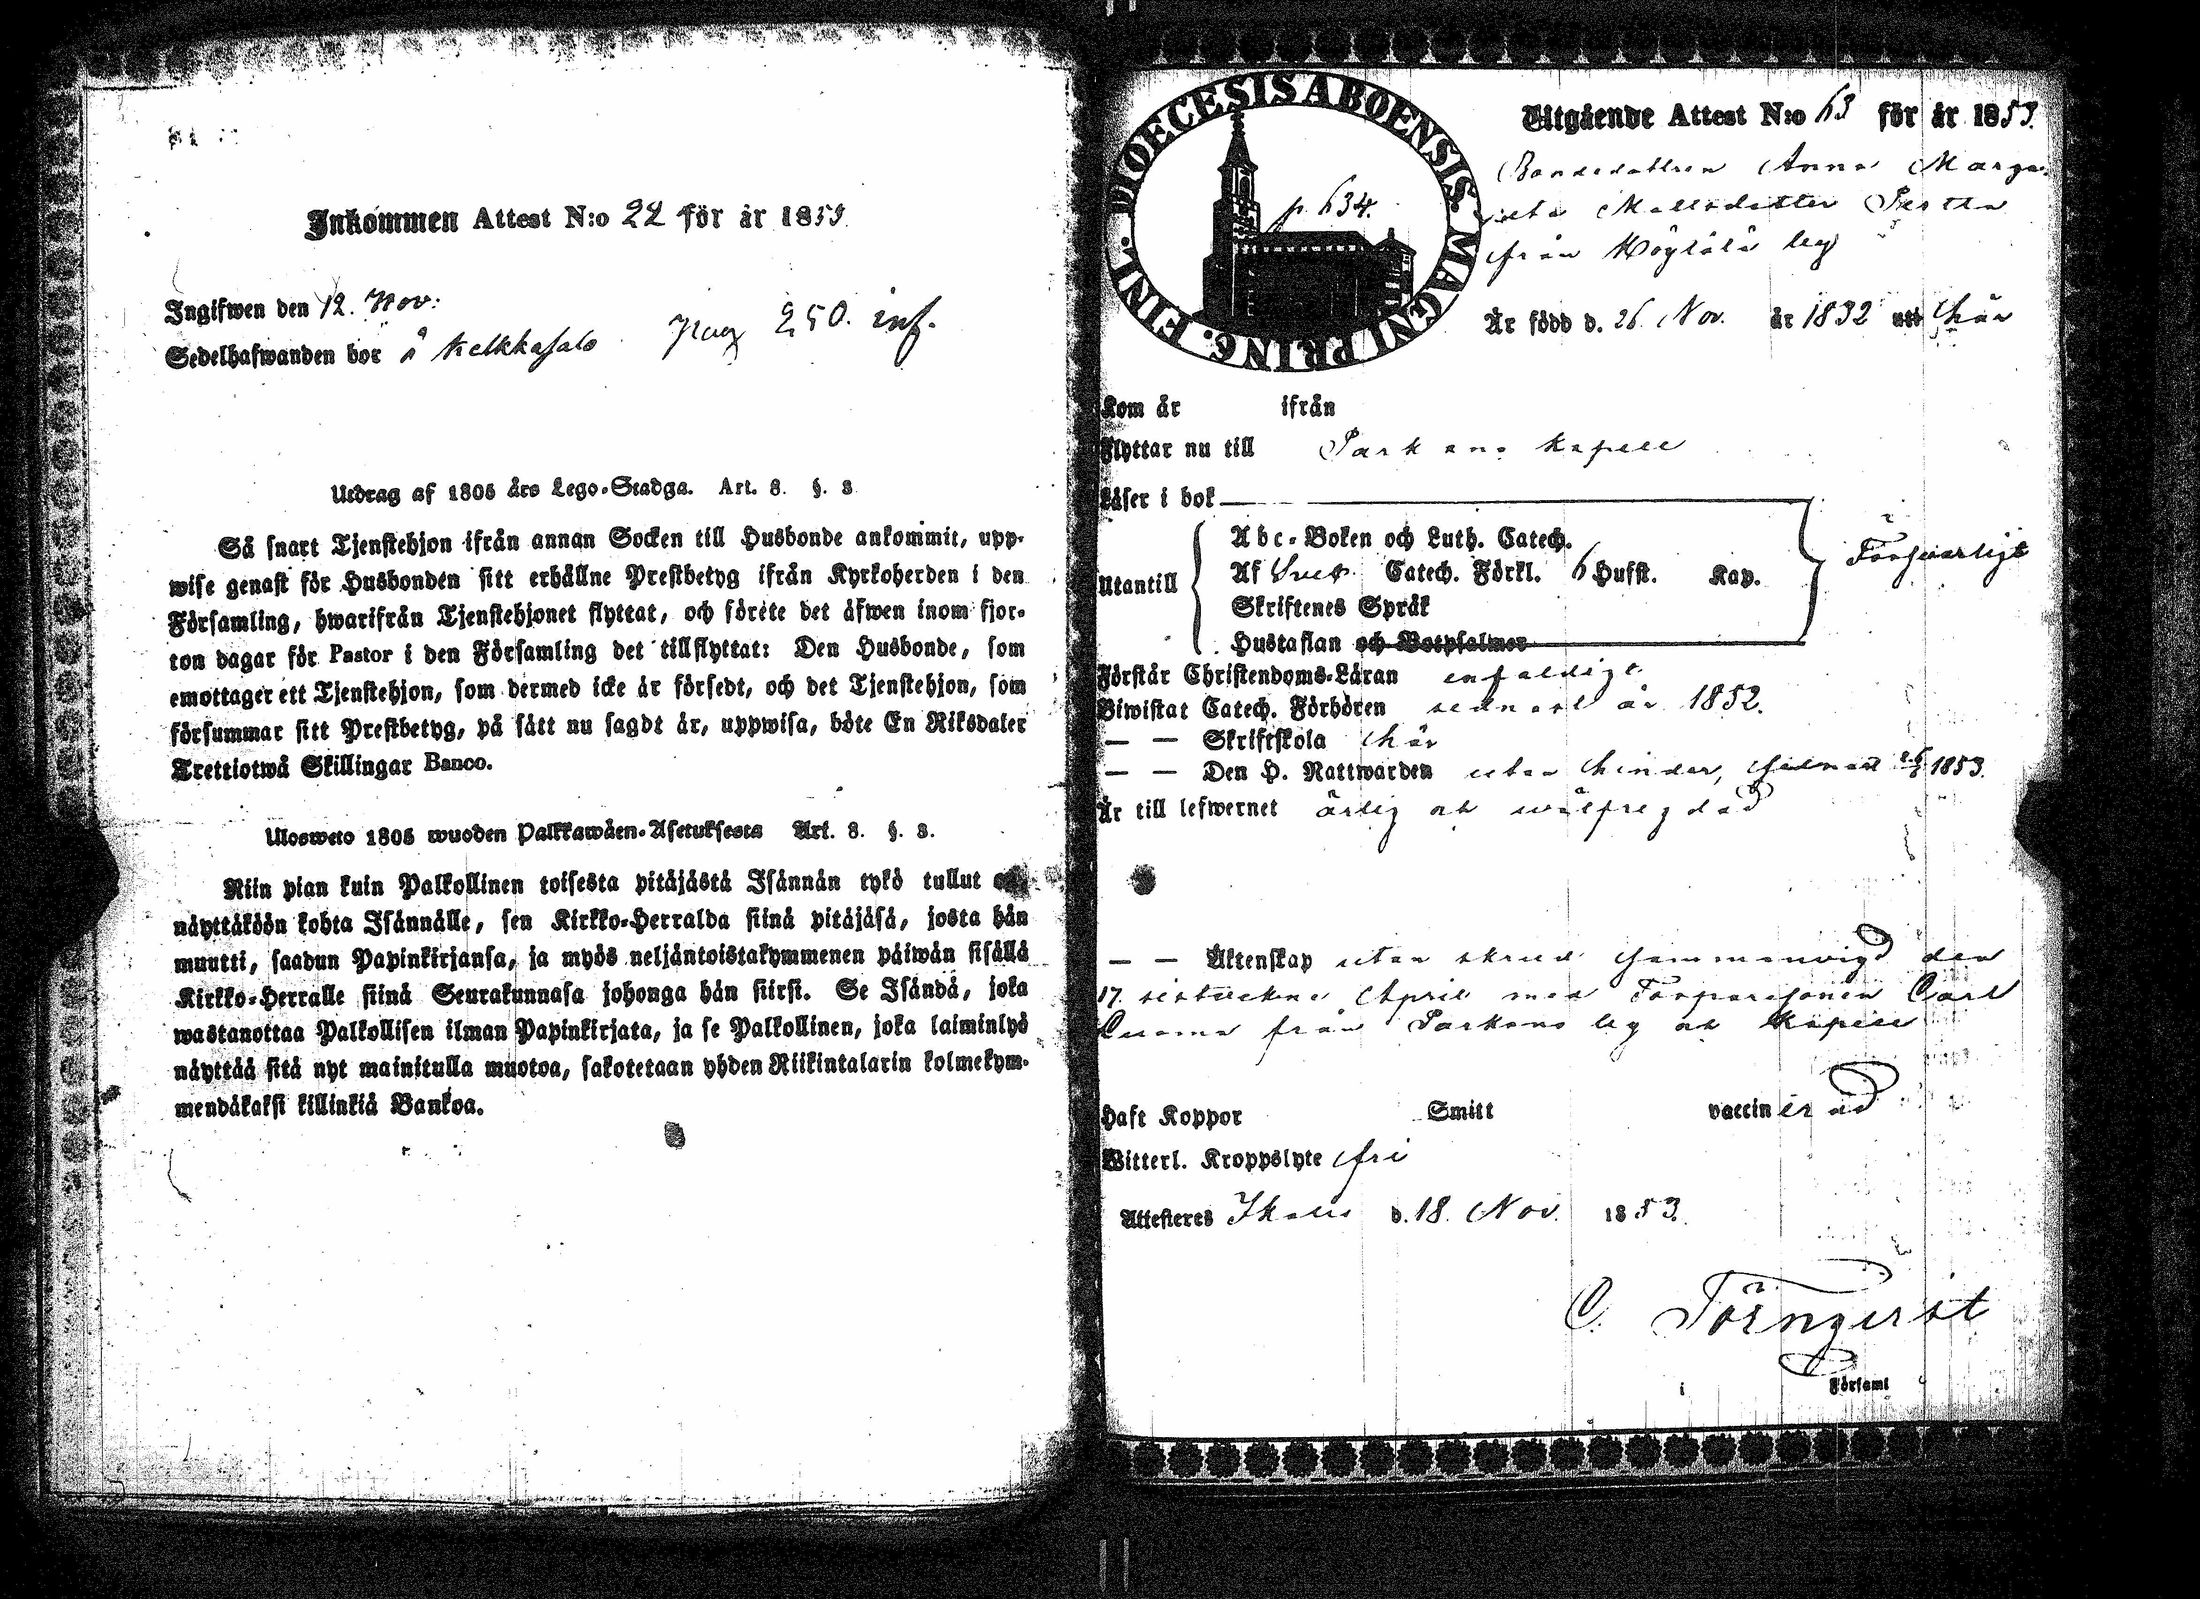 Inkommen Attest N:o 22 för år 1853.
Ingifwen den 12. Nov:
Sedelhafwanden bor å Kelkkasalo pag 250. inf.
Utdrag af 1805 års Lego-Stadga. Art. 8. §. 3
Så snart Tjenstehjon ifrån annan Socken till Husbonde ankommit, upp-
wise genast för Husbonden sitt erhållne Prestbetyg ifrån Kyrkoherden i den
Församling, hwarifrån Tjenstehjonet flyttat, och förete det äfwen inom fjor-
ton dagar för Pastor i den Församling det tillflyttat: Den Husbonde, som
emottager ett Tjenstehjon, som dermed icke är försedt, och det Tjenstehjon, som
försummar sitt Prestbetyg, på sätt nu sagdt är, uppwisa, böte En Riksdaler
Trettiotwå Skillingar Banco.
Ulosweto 1805 wuoden Palkkawäen-Asetuksesta Art. 8. §. 3.
Niin pian kuin Palkollinen toisesta pitäjästä Isännän tykö tullut
näyttäköön kohta Isännälle, sen Kirkko-Herralda siinä pitäjäsä, josta hän
muutti, saadun Papinkirjansa, ja myös neljäntoistakymmenen päiwän sisällä
Kirkko-Herralle siinä Seurakunnasa johonga hän siirsi. Se Isändä, joka
wastanottaa Palkollisen ilman Papinkirjata, ja se Palkollinen, joka laiminlyö
näyttää sitä nyt mainitulla muotoa, sakotetaan yhden Riikintalarin kolmekym-
mendäkaksi killinkiä Bankoa.
DIOECESIS ABOENSIS. MAGNI PRINC. FINL.
p. 634.
Utgående Attest N:o 63 för år 1853.
Bondedottren Anna Marga-
reta Mattsdotter
från by
Är född d. 26. Nov. år 1832 här
Kom år ifrån
Flyttar nu till Parkano Kapell
Läser i bok
Abc-Boken och Luth. Catech.
Utantill Af Sveb. Catech. Förkl. 6 Hufst. Kap. Försvarligt
Skriftenes Språk
Hustaflan och Botpsalmer
Förstår Christendoms-Läran enfaldigt
Biwistat Catech. Förhören sednast år 1852.
— — Skriftskola här
— — Den H. Nattwarden utan hinder, sednast 1853.
Är till lefwernet ärlig och wälfregdad
— — Äktenskap utan skrud sammanvigd den
17. sistuckne April med Torparesonen Carl
från Parkano by och Kapell
Haft Koppor Smitt vaccinerad
Witterl. Kroppslyte fri
Attesteres Ikalis d. 18. Nov. 1853.
C. Törnqvist
i Församl